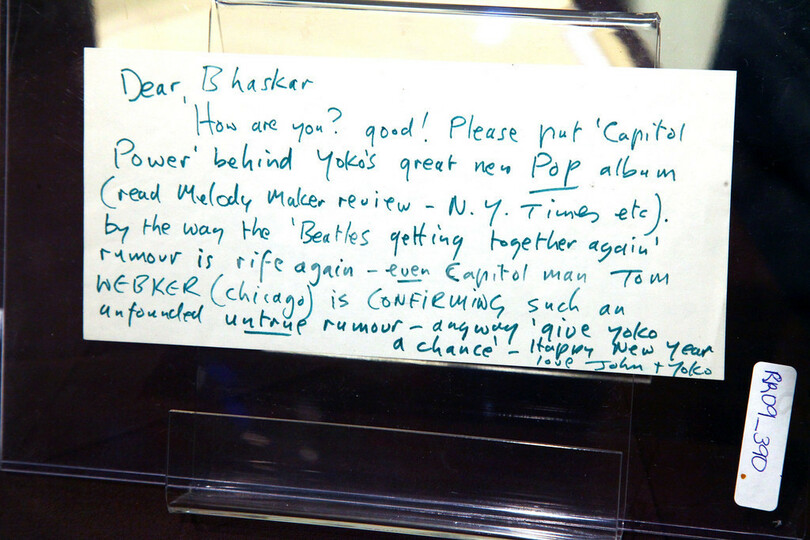 Dear, Bhaskar
How are you? good! Please put 'Capitol
Power' behind Yoko's great new Pop album
(read Melody Maker review - N.Y. Times etc).
by the way the 'Beatles getting together again'
rumour is rife again - even Capitol man Tom
WERKER (chicago) is CONFIRMING such an
unfounded untrue rumour - anyway 'give Yoko
a chance' - Happy New Year
love John + Yoko
RR09_390